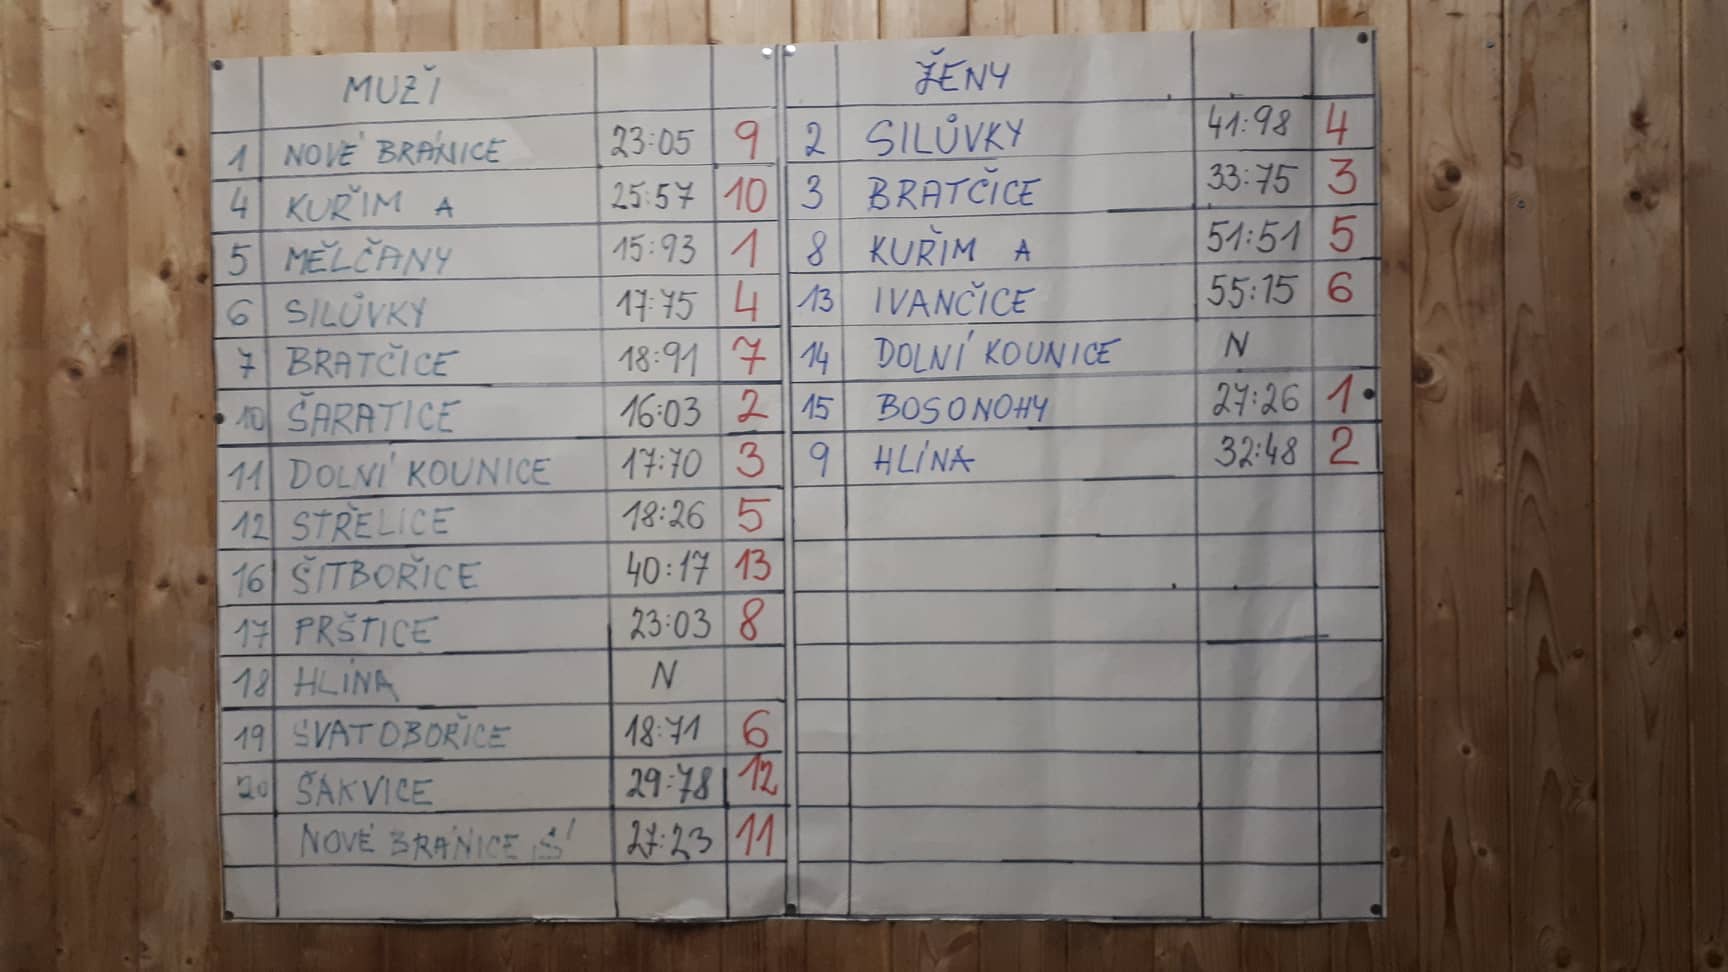 MUŽI
1 NOVÉ BRÁNICE 23:05 9
4 KUŘIM A 25:57 10
5 MĚLČANY 15:93 1
6 SILŮVKY 17:75 4
7 BRATČICE 18:91 7
10 ŠARATICE 16:03 2
11 DOLNÍ KOUNICE 17:70 3
12 STŘELICE 18:26 5
16 ŠITBOŘICE 40:17 13
17 PRŠTICE 23:03 8
18 HLÍNA N
19 SVATOBOŘICE 18:71 6
20 ŠAKVICE 29:78 12
NOVÉ BRÁNICE S 27:23 11
ŽENY
2 SILŮVKY 41:98 4
3 BRATČICE 33:75 3
8 KUŘIM A 51:51 5
13 IVANČICE 55:15 6
14 DOLNÍ KOUNICE N
15 BOSONOHY 27:26 1
9 HLÍNA 32:48 2